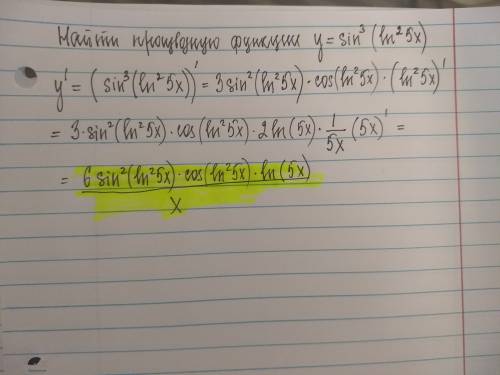 Найти производную функции y = sin³(ln²5x)
y' = (sin³(ln²5x))' = 3sin²(ln²5x)·cos(ln²5x)·(ln²5x)'
= 3·sin²(ln²5x)·cos(ln²5x)·2ln(5x)·1/5x (5x)' =
= 6 sin²(ln²5x)·cos(ln²5x)·ln(5x)
x